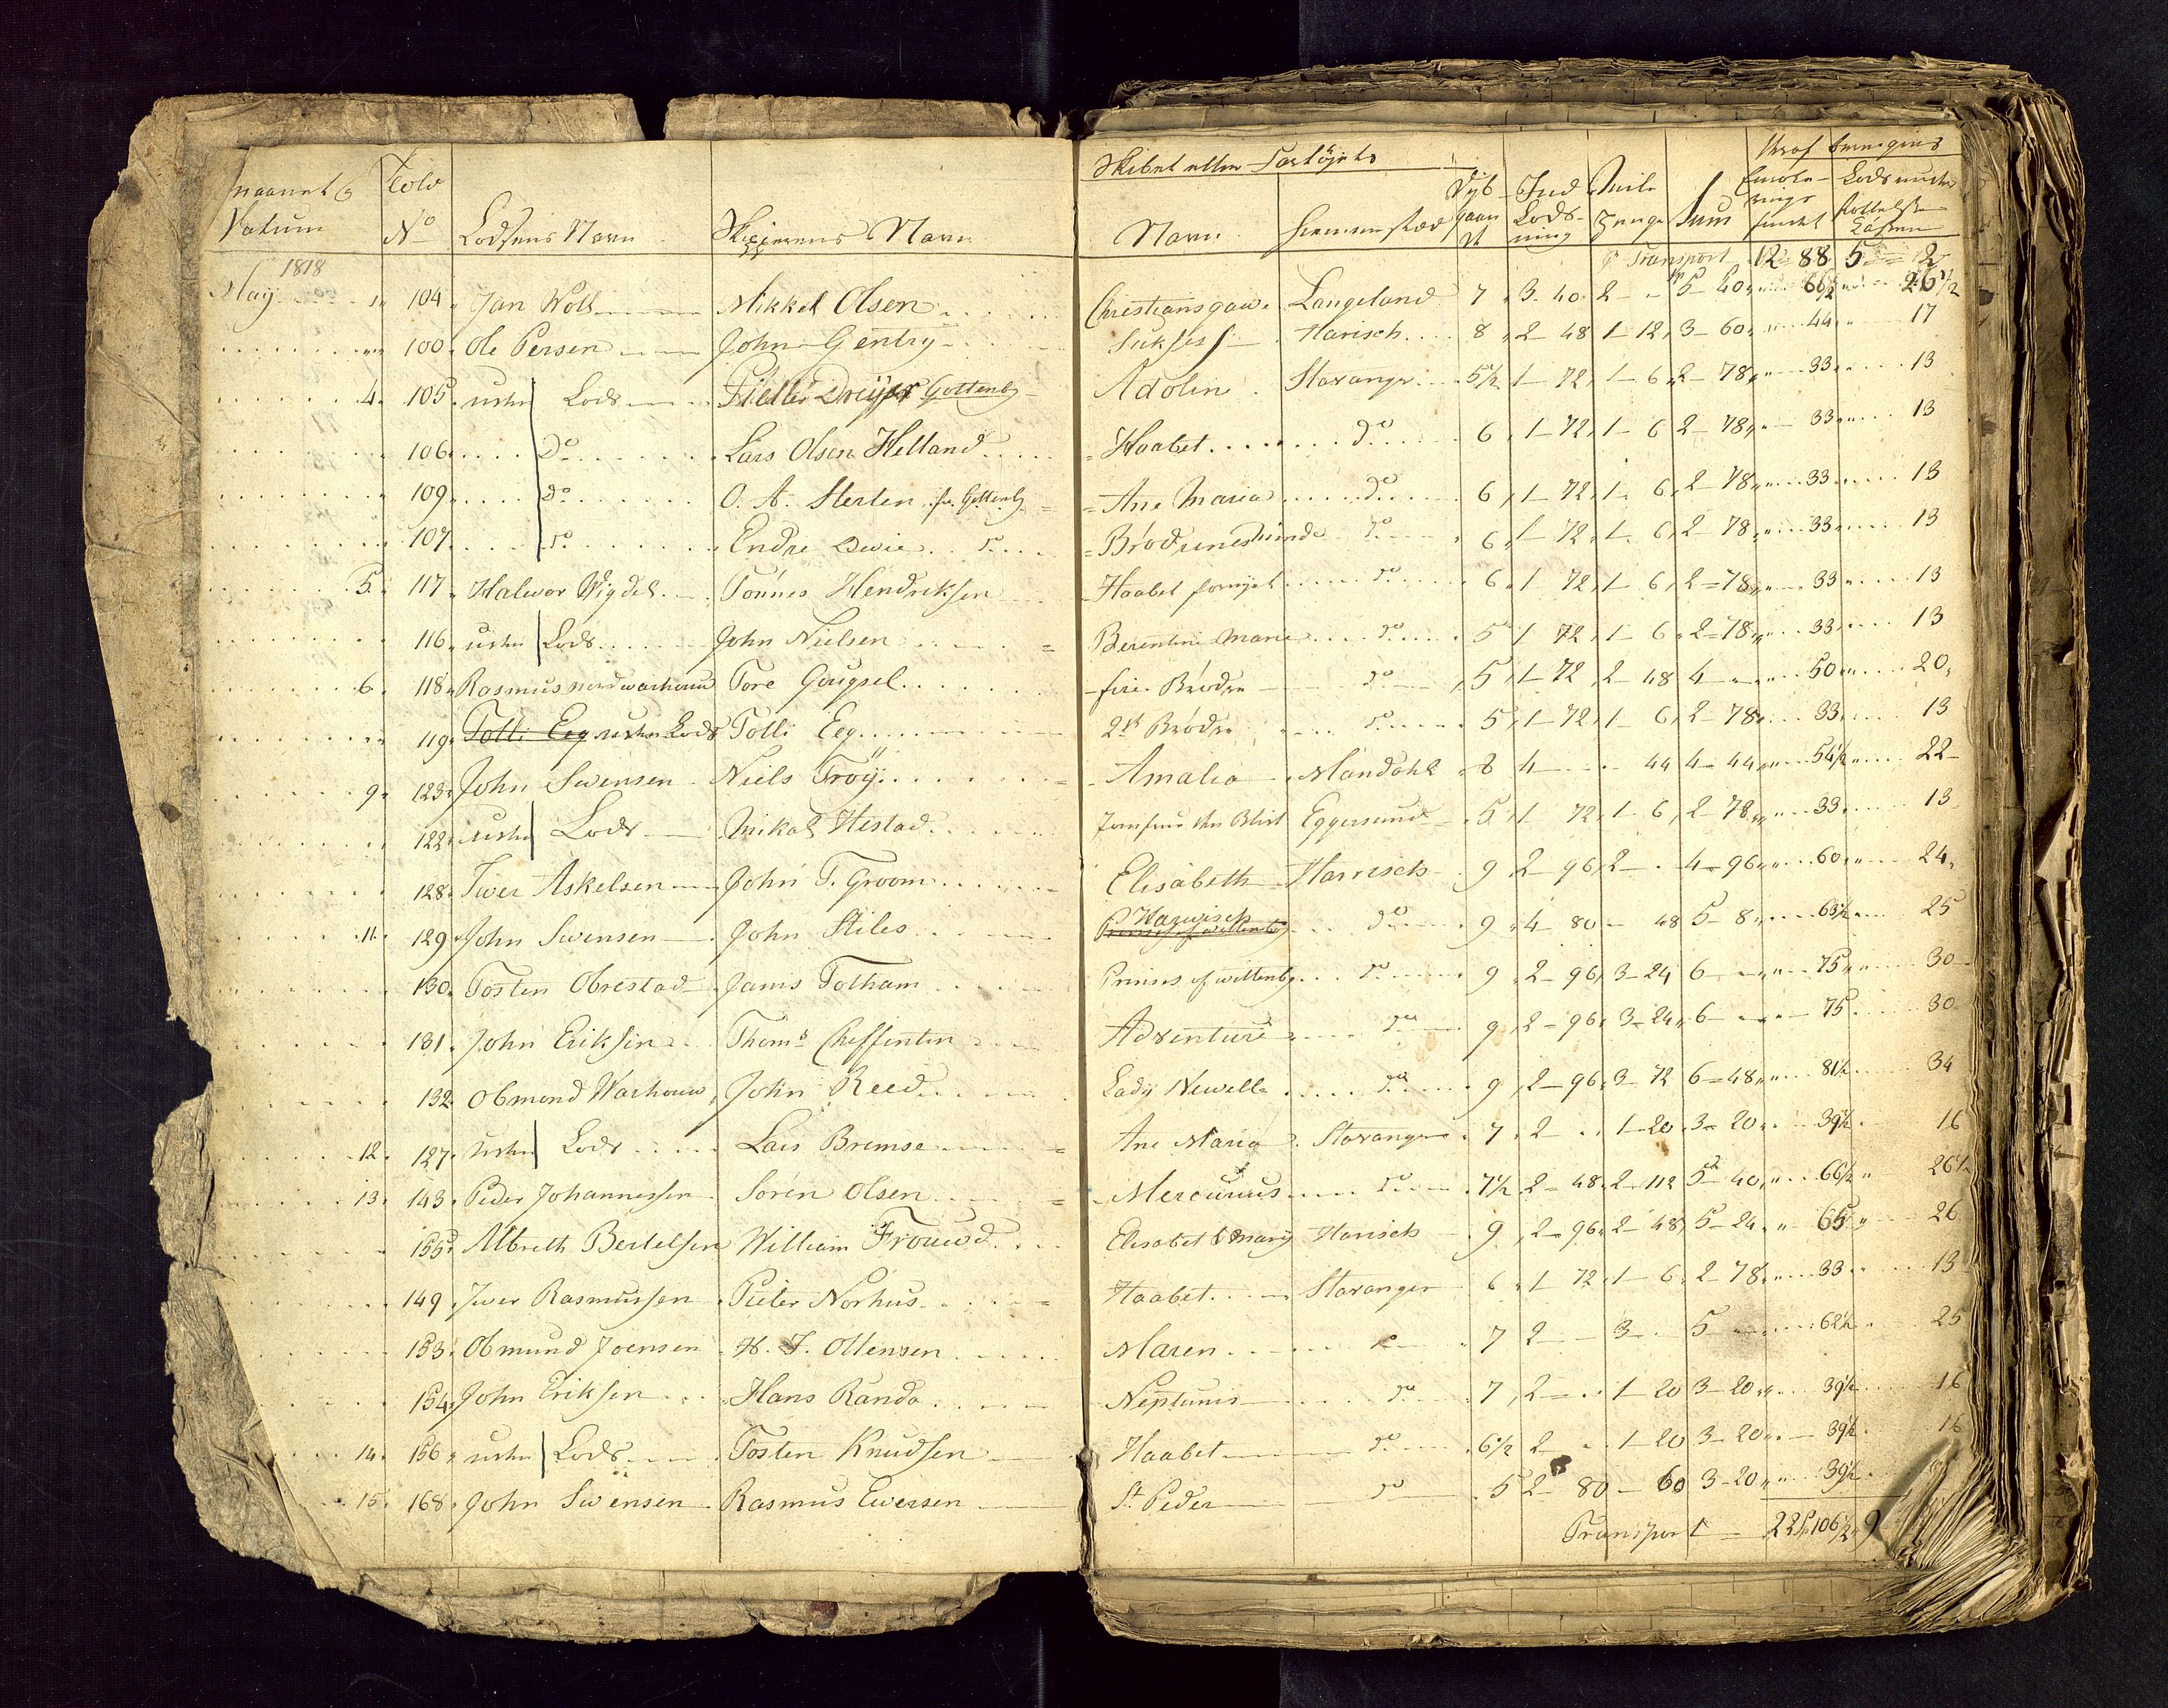 Maanet & Datum | Told No | Lodsens Navn | Skipperens Navn | Skibet eller Fartøjets Navn | Hiemmestæd | Dyb gaaende | Ind Lodsning | Miile Penge | Sum | Heraf beregnes
Transport 12 - 88 5 - 2
1818
May 1 104 Jan Woll Mikkel Olsen Christiansgave Langeland 7 3 - 40 2 - 5 - 40 66½ 26½
100 Ole Persen John Gentry Sukses Harisch 8 2 - 48 1 - 12 3 - 60 44 17
4 105 ustn Lods Pieter Dreyer Gottenb Adolin Stavanger 5½ 1 - 72 1 - 6 2 - 78 33 13
106 Do Lars Olsen Helland Haabet do 6 1 - 72 1 - 6 2 - 78 33 13
109 do O. A. Sterten fr. Gottenb Ane Maria do 6 1 - 72 1 - 6 2 - 78 33 13
107 do Endre Do Brødrenes do 6 1 - 72 1 - 6 2 - 78 33 13
5 117 Halvor Wigdel Tönnes Hendriksen Haabet fornyet do 6 1 - 72 1 - 6 2 = 78 33 13
116 ustn Lods John Nielsen Berentine Marie do 5 1 - 72 1 - 6 2 = 78 33 13
6 118 Rasmus nordwarhoug Tore Gougsel fire Brödre do 5 1 - 72 2 - 48 4 - 50 20
119 Tolli Eeg ustn Lods Tolli Eeg 2de Brödre do 5 1 - 72 1 - 6 2 - 78 33 13
9 123 John Swensen Niels Troÿ Amalia Mandahl 8 4 - 44 4 - 44 54½ 22
122 ustn Lods Mikal Hestad Eggersund 5 1 - 72 1 - 6 2 - 78 33 13
128 Iwer Askelsen John T. Groom Elisabeth Harrisch 9 2 - 96 2 - 4 - 96 60 24
11 129 John Swensen John Stiles Prinses of wittenb Harwisch do 9 4 - 80 - 48 5 - 8 63½ 25
130 Tosten Obrestad Jams Totham Prinses of wittenb do 9 2 - 96 3 - 24 6 - 75 30
131 John Eriksen Thoms Cheffenten Adventure do 9 2 - 96 3 - 24 6 - 75 30
132 Obmond Warhoug John Reed Lady Newell do 9 2 - 96 3 - 72 6 - 48 81½ 34
12 127 ustn Lods Lars Bremse Ane Maria Stavanger 7 2 - 1 - 20 3 - 20 39½ 16
13 143 Peder Johannessen Sören Olsen Mercurius do 7½ 2 - 48 2 - 112 5 - 40 66½ 26½
155 Albreth Bertelsen William Frouwd Elisabet & Mary Harisch 9 2 - 96 2 - 48 5 - 24 65 26
149 Iwer Rasmussen Pieter Norhus Haabet Stavanger 6 1 - 72 1 - 6 2 - 78 33 13
153 Obmund Joensen H. J. Ottensen Maren do 7 2 - 3 - 5 - 62½ 25
154 John Eriksen Hans Randa Neptunus do 7 2 - 1 - 20 3 - 20 39½ 16
14 156 ustn Lods Tosten Knudsen Haabet do 6½ 2 - 1 - 20 3 - 20 39½ 16
15 168 John Swensen Rasmus Ewersen St Peder do 5 2 - 80 - 60 3 - 20 39½
Transport 22 106½ 9